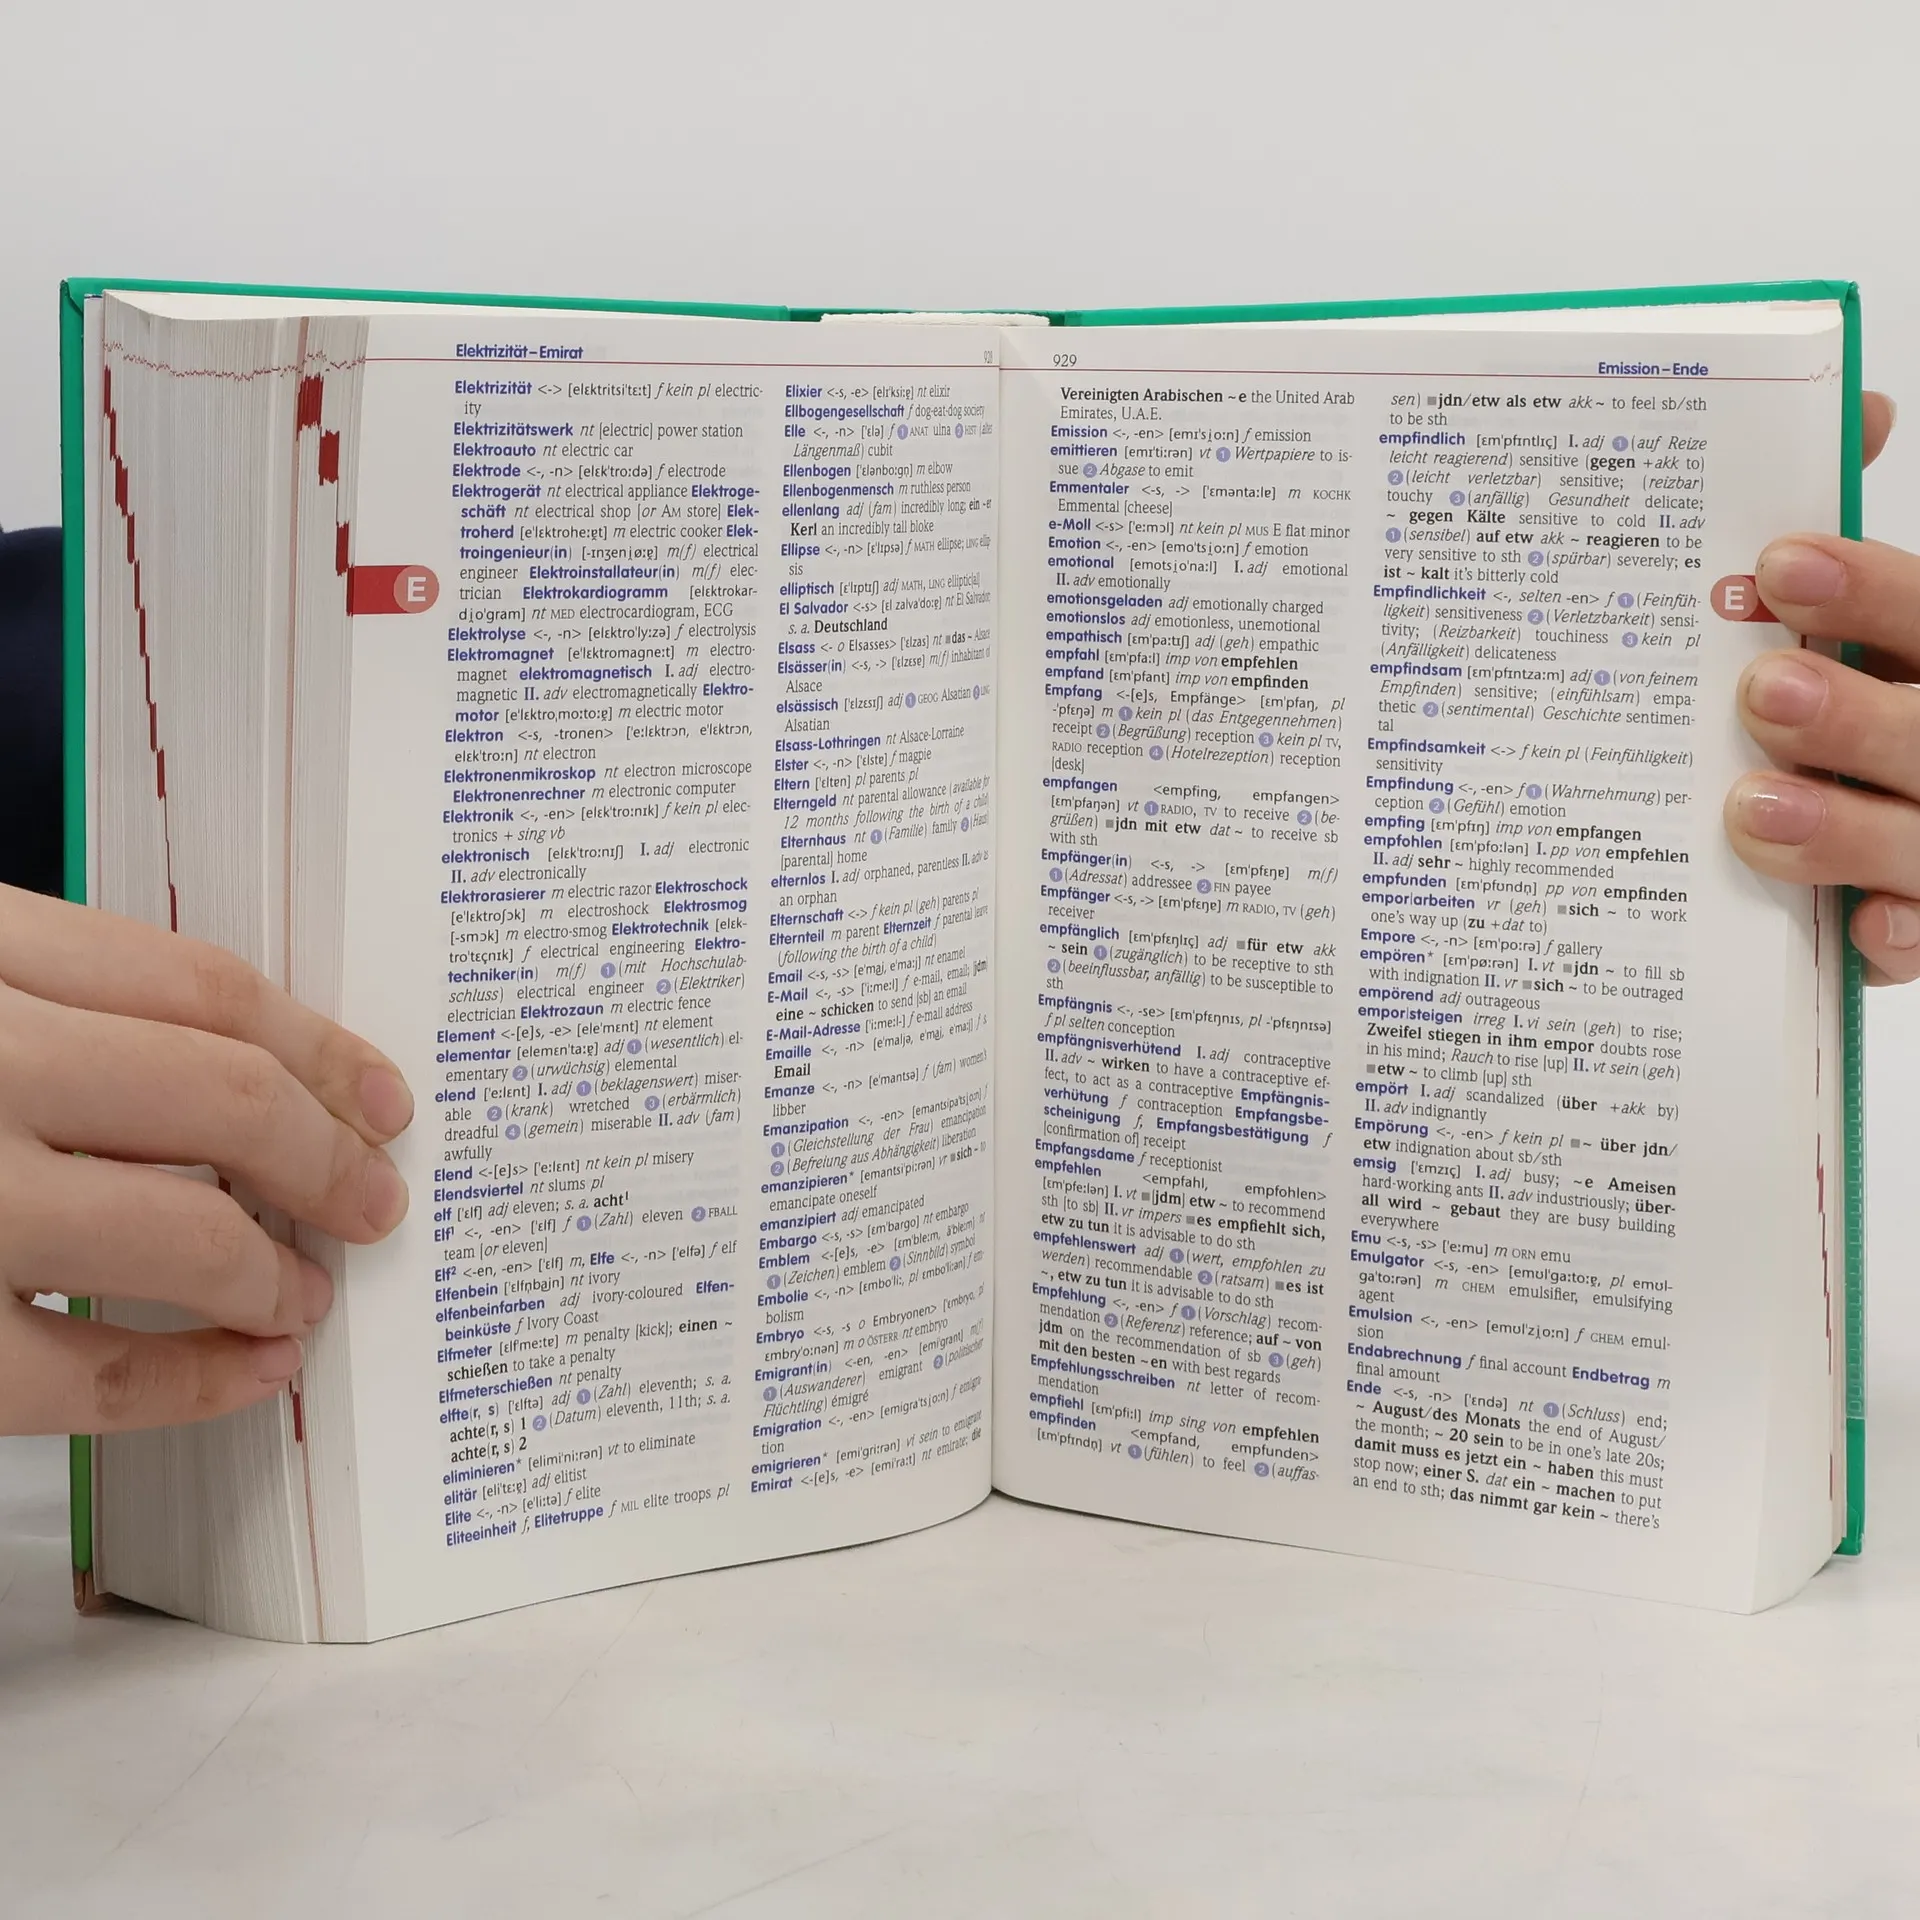 Elektrizität–Emirat
928
Elektrizität <-> [elɛktritsiˈtɛːt] f kein pl electric-
ity
Elektrizitätswerk nt [electric] power station
Elektroauto nt electric car
Elektrode <-, -n> [elɛkˈtroːdə] f electrode
Elektrogerät nt electrical appliance Elektroge-
schäft nt electrical shop [or AM store] Elek-
troherd [eˈlɛktroheːɐ̯t] m electric cooker Elek-
troingenieur(in) [-ɪnʒeni̯øːɐ̯] m(f) electrical
engineer Elektroinstallateur(in) m(f) elec-
trician Elektrokardiogramm [elɛktrokar-
di̯oˈgram] nt MED electrocardiogram, ECG
Elektrolyse <-, -n> [elɛktroˈlyːzə] f electrolysis
Elektromagnet [eˈlɛktromagneːt] m electro-
magnet elektromagnetisch I. adj electro-
magnetic II. adv electromagnetically Elektro-
motor [eˈlɛktroˌmoːtoːɐ̯] m electric motor
Elektron <-s, -tronen> [ˈeːlɛktrɔn, eˈlɛktrɔn,
elɛkˈtroːn] nt electron
Elektronenmikroskop nt electron microscope
Elektronenrechner m electronic computer
Elektronik <-, -en> [elɛkˈtroːnɪk] f kein pl elec-
tronics + sing vb
elektronisch [elɛkˈtroːnɪʃ] I. adj electronic
II. adv electronically
Elektrorasierer m electric razor Elektroschock
[eˈlɛktroʃɔk] m electroshock Elektrosmog
[-smɔk] m electro-smog Elektrotechnik [elɛk-
troˈtɛçnɪk] f electrical engineering Elektro-
techniker(in) m(f) ① (mit Hochschulab-
schluss) electrical engineer ② (Elektriker)
electrician Elektrozaun m electric fence
Element <-[e]s, -e> [eleˈmɛnt] nt element
elementar [elemɛnˈtaːɐ̯] adj ① (wesentlich) el-
ementary ② (urwüchsig) elemental
elend [ˈeːlɛnt] I. adj ① (beklagenswert) miser-
able ② (krank) wretched ③ (erbärmlich)
dreadful ④ (gemein) miserable II. adv (fam)
awfully
Elend <-[e]s> [ˈeːlɛnt] nt kein pl misery
Elendsviertel nt slums pl
elf [ˈɛlf] adj eleven; s. a. acht¹
Elf¹ <-, -en> [ˈɛlf] f ① (Zahl) eleven ② FBALL
team [or eleven]
Elf² <-en, -en> [ˈɛlf] m, Elfe <-, -n> [ˈɛlfə] f elf
Elfenbein [ˈɛlfn̩bai̯n] nt ivory
elfenbeinfarben adj ivory-coloured Elfen-
beinküste f Ivory Coast
Elfmeter [ɛlfˈmeːtɐ] m penalty [kick]; einen ~
schießen to take a penalty
Elfmeterschießen nt penalty
elfte(r, s) [ˈɛlftə] adj ① (Zahl) eleventh; s. a.
achte(r, s) 1 ② (Datum) eleventh, 11th; s. a.
achte(r, s) 2
eliminieren* [elimiˈniːrən] vt to eliminate
elitär [eliˈtɛːɐ̯] adj elitist
Elite <-, -n> [eˈliːtə] f elite
Eliteeinheit f, Elitetruppe f MIL elite troops pl
Elixier <-s, -e> [elɪˈksiːɐ̯] nt elixir
Ellbogengesellschaft f dog-eat-dog society
Elle <-, -n> [ˈɛlə] f ① ANAT ulna ② HIST (altes
Längenmaß) cubit
Ellenbogen [ˈɛlənboːgn̩] m elbow
Ellenbogenmensch m ruthless person
ellenlang adj (fam) incredibly long; ein ~er
Kerl an incredibly tall bloke
Ellipse <-, -n> [ɛˈlɪpsə] f MATH ellipse; LING ellip-
sis
elliptisch [ɛˈlɪptɪʃ] adj MATH, LING elliptic[al]
El Salvador <-s> [ɛl zalvaˈdoːɐ̯] nt El Salvador
s. a. Deutschland
Elsass <- o Elsasses> [ˈɛlzas] nt ■ das ~ Alsace
Elsässer(in) <-s, -> [ˈɛlzɛsɐ] m(f) inhabitant of
Alsace
elsässisch [ˈɛlzɛsɪʃ] adj ① GEOG Alsatian ② LING
Alsatian
Elsass-Lothringen nt Alsace-Lorraine
Elster <-, -n> [ˈɛlstɐ] f magpie
Eltern [ˈɛltɐn] pl parents pl
Elterngeld nt parental allowance (available for
12 months following the birth of a child)
Elternhaus nt ① (Familie) family ② (Haus)
[parental] home
elternlos I. adj orphaned, parentless II. adv as
an orphan
Elternschaft <-> f kein pl (geh) parents pl
Elternteil m parent Elternzeit f parental leave
(following the birth of a child)
Email <-s, -s> [eˈmai̯, eˈmaːj] nt enamel
E-Mail <-, -s> [ˈiːmeːl] f e-mail, email; [jdm]
eine ~ schicken to send [sb] an email
E-Mail-Adresse [ˈiːmeːl-] f e-mail address
Emaille <-, -n> [eˈmaljə, eˈmai̯, eˈmaːj] f s.
Email
Emanze <-, -n> [eˈmantsə] f (fam) women's
libber
Emanzipation <-, -en> [emantsipaˈtsi̯oːn] f
① (Gleichstellung der Frau) emancipation
② (Befreiung aus Abhängigkeit) liberation
emanzipieren* [emantsiˈpiːrən] vr ■ sich ~ to
emancipate oneself
emanzipiert adj emancipated
Embargo <-s, -s> [ɛmˈbargo] nt embargo
Emblem <-[e]s, -e> [ɛmˈbleːm, ãˈbleːm] nt
① (Zeichen) emblem ② (Sinnbild) symbol
Embolie <-, -n> [ɛmboˈliː, pl ɛmboˈliːən] f em-
bolism
Embryo <-s, -s o Embryonen> [ˈɛmbryo, pl
ɛmbryˈoːnən] m o ÖSTERR nt embryo
Emigrant(in) <-en, -en> [emiˈgrant] m(f)
① (Auswanderer) emigrant ② (politischer
Flüchtling) émigré
Emigration <-, -en> [emigraˈtsi̯oːn] f emigra-
tion
emigrieren* [emiˈgriːrən] vi sein to emigrate
Emirat <-[e]s, -e> [emiˈraːt] nt emirate; die
E
929
Emission–Ende
Vereinigten Arabischen ~e the United Arab
Emirates, U.A.E.
Emission <-, -en> [emɪˈsi̯oːn] f emission
emittieren [emɪˈtiːrən] vt ① Wertpapiere to is-
sue ② Abgase to emit
Emmentaler <-s, -> [ˈɛməntaːlɐ] m KOCHK
Emmental [cheese]
e-Moll <-s> [ˈeːmɔl] nt kein pl MUS E flat minor
Emotion <-, -en> [emoˈtsi̯oːn] f emotion
emotional [emotsi̯oˈnaːl] I. adj emotional
II. adv emotionally
emotionsgeladen adj emotionally charged
emotionslos adj emotionless, unemotional
empathisch [ɛmˈpaːtɪʃ] adj (geh) empathic
empfahl [ɛmˈpfaːl] imp von empfehlen
empfand [ɛmˈpfant] imp von empfinden
Empfang <-[e]s, Empfänge> [ɛmˈpfaŋ, pl
-ˈpfɛŋə] m ① kein pl (das Entgegennehmen)
receipt ② (Begrüßung) reception ③ kein pl TV,
RADIO reception ④ (Hotelrezeption) reception
[desk]
empfangen <empfing, empfangen>
[ɛmˈpfaŋən] vt ① RADIO, TV to receive ② (be-
grüßen) ■ jdn mit etw dat ~ to receive sb
with sth
Empfänger(in) <-s, -> [ɛmˈpfɛŋɐ] m(f)
① (Adressat) addressee ② FIN payee
Empfänger <-s, -> [ɛmˈpfɛŋɐ] m RADIO, TV (geh)
receiver
empfänglich [ɛmˈpfɛŋlɪç] adj ■ für etw akk
~ sein ① (zugänglich) to be receptive to sth
② (beeinflussbar, anfällig) to be susceptible to
sth
Empfängnis <-, -se> [ɛmˈpfɛŋnɪs, pl -ˈpfɛŋnɪsə]
f pl selten conception
empfängnisverhütend I. adj contraceptive
II. adv ~ wirken to have a contraceptive ef-
fect, to act as a contraceptive Empfängnis-
verhütung f contraception Empfangsbe-
scheinigung f, Empfangsbestätigung f
[confirmation of] receipt
Empfangsdame f receptionist
empfehlen <empfahl, empfohlen>
[ɛmˈpfeːlən] I. vt ■ [jdm] etw ~ to recommend
sth [to sb] II. vr impers ■ es empfiehlt sich,
etw zu tun it is advisable to do sth
empfehlenswert adj ① (wert, empfohlen zu
werden) recommendable ② (ratsam) ■ es ist
~, etw zu tun it is advisable to do sth
Empfehlung <-, -en> f ① (Vorschlag) recom-
mendation ② (Referenz) reference; auf ~ von
jdm on the recommendation of sb ③ (geh)
mit den besten ~en with best regards
Empfehlungsschreiben nt letter of recom-
mendation
empfiehl [ɛmˈpfiːl] imp sing von empfehlen
empfinden <empfand, empfunden>
[ɛmˈpfɪndn̩] vt ① (fühlen) to feel ② (auffas-
sen) ■ jdn/etw als etw akk ~ to feel sb/sth
to be sth
empfindlich [ɛmˈpfɪntlɪç] I. adj ① (auf Reize
leicht reagierend) sensitive (gegen +akk to)
② (leicht verletzbar) sensitive; (reizbar)
touchy ③ (anfällig) Gesundheit delicate;
~ gegen Kälte sensitive to cold II. adv
① (sensibel) auf etw akk ~ reagieren to be
very sensitive to sth ② (spürbar) severely; es
ist ~ kalt it's bitterly cold
Empfindlichkeit <-, selten -en> f ① (Feinfüh-
ligkeit) sensitiveness ② (Verletzbarkeit) sensi-
tivity; (Reizbarkeit) touchiness ③ kein pl
(Anfälligkeit) delicateness
empfindsam [ɛmˈpfɪntzaːm] adj ① (von feinem
Empfinden) sensitive; (einfühlsam) empa-
thetic ② (sentimental) Geschichte sentimen-
tal
Empfindsamkeit <-> f kein pl (Feinfühligkeit)
sensitivity
Empfindung <-, -en> f ① (Wahrnehmung) per-
ception ② (Gefühl) emotion
empfing [ɛmˈpfɪŋ] imp von empfangen
empfohlen [ɛmˈpfoːlən] I. pp von empfehlen
II. adj sehr ~ highly recommended
empfunden [ɛmˈpfʊndn̩] pp von empfinden
empor|arbeiten vr (geh) ■ sich ~ to work
one's way up (zu +dat to)
Empore <-, -n> [ɛmˈpoːrə] f gallery
empören* [ɛmˈpøːrən] I. vt ■ jdn ~ to fill sb
with indignation II. vr ■ sich ~ to be outraged
empörend adj outrageous
empor|steigen irreg I. vi sein (geh) to rise;
Zweifel stiegen in ihm empor doubts rose
in his mind; Rauch to rise [up] II. vt sein (geh)
■ etw ~ to climb [up] sth
empört I. adj scandalized (über +akk by)
II. adv indignantly
Empörung <-, -en> f kein pl ■ ~ über jdn/
etw indignation about sb/sth
emsig [ˈɛmzɪç] I. adj busy; ~e Ameisen
hard-working ants II. adv industriously; über-
all wird ~ gebaut they are busy building
everywhere
Emu <-s, -s> [ˈeːmu] m ORN emu
Emulgator <-s, -en> [emʊlˈgaːtoːɐ̯, pl emʊl-
gaˈtoːrən] m CHEM emulsifier, emulsifying
agent
Emulsion <-, -en> [emʊlˈzi̯oːn] f CHEM emul-
sion
Endabrechnung f final account Endbetrag m
final amount
Ende <-s, -n> [ˈɛndə] nt ① (Schluss) end;
~ August/des Monats the end of August/
the month; ~ 20 sein to be in one's late 20s;
damit muss es jetzt ein ~ haben this must
stop now; einer S. dat ein ~ machen to put
an end to sth; das nimmt gar kein ~ there's
E